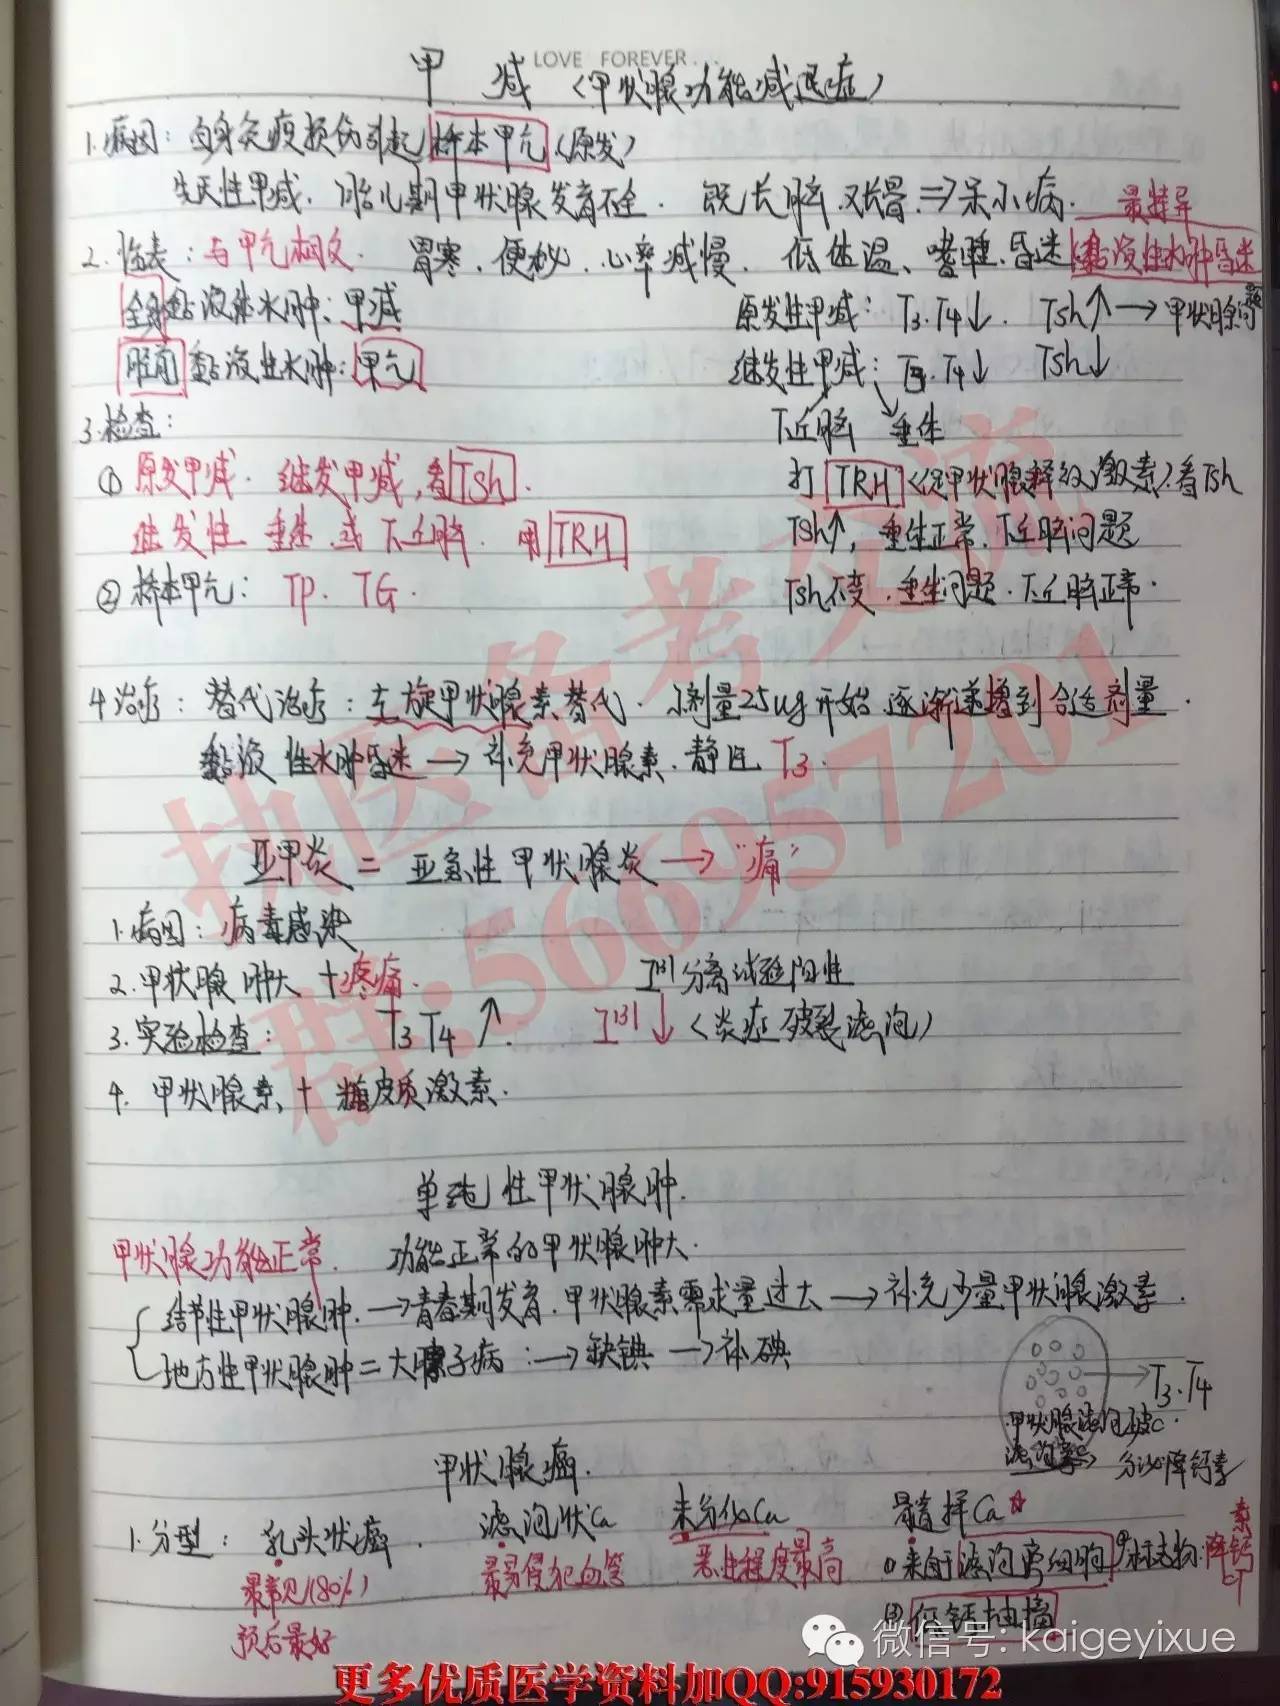 LOVE FOREVER...
甲 减 (甲状腺功能减退症)
1.病因：自身免疫损伤引起 桥本甲亢 (原发)
先天性甲减，胎儿期甲状腺发育不全. 既长脑又长骨 ⇒ 呆小病.
最特异
2.临表：与甲亢相反. 胃寒、便秘、心率减慢、低体温、嗜睡、昏迷(黏液性水肿昏迷
全身黏液性水肿：甲减
胫前黏液性水肿：甲亢
原发性甲减：T3.T4↓. Tsh↑→甲状腺问题
继发性甲减：T3.T4↓ Tsh↓
下丘脑 垂体
3.检查：
① 原发甲减. 继发甲减，看Tsh.
继发性 垂体 或 下丘脑. 用TRH
② 桥本甲亢：TP. TG.
打TRH(促甲状腺释放激素)看Tsh
Tsh↑，垂体正常.下丘脑问题
Tsh不变.垂体问题.下丘脑正常.
4.治疗：替代治疗：左旋甲状腺素替代. 小剂量25ug开始 逐渐递增到合适剂量.
黏液性水肿昏迷 → 补充甲状腺素.静注 T3.
亚甲炎 = 亚急性甲状腺炎 → "痛"
1.病因：病毒感染
2.甲状腺肿大 + 疼痛.
I131分离试验阳性
3.实验检查： T3 T4 ↑. I131↓ (炎症破裂滤泡)
4. 甲状腺素 + 糖皮质激素.
单纯性甲状腺肿.
甲状腺功能正常. 功能正常的甲状腺肿大.
结节性甲状腺肿. → 青春期发育.甲状腺素需求量过大 → 补充少量甲状腺激素.
地方性甲状腺肿 = 大脖子病：→ 缺碘 → 补碘
→T3.T4
甲状腺滤泡破C.
滤泡旁C→ 分泌降钙素
甲状腺癌.
1.分型：乳头状癌. 滤泡状Ca 未分化Ca 髓样Ca☆
最常见(80%) 最易侵犯血管 恶性程度最高 ①来自于滤泡旁细胞 标志物：降钙素 CT
预后最好 ②低钙抽搐
执医备考交流
群:566957201
微信号: kaigeyixue
更多优质医学资料加QQ:915930172